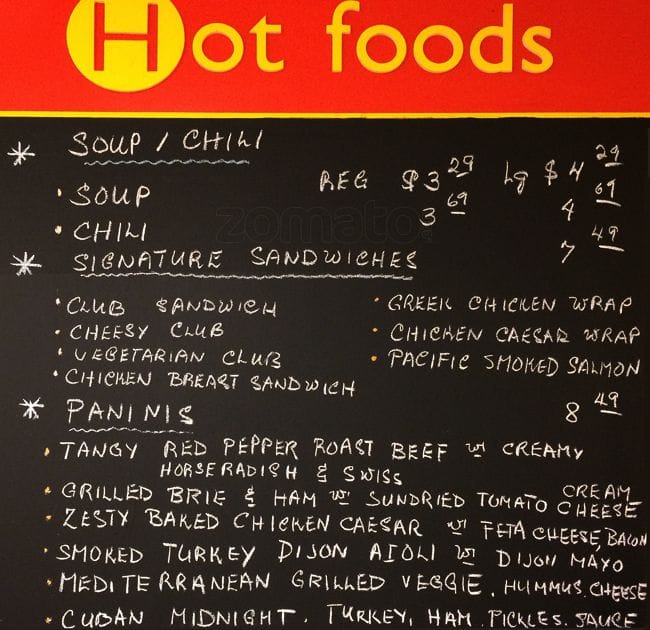 Hot foods
* SOUP / CHILI
• SOUP REG $3 29 Lg $4 29
• CHILI 3 69 4 69
* SIGNATURE SANDWICHES 7 49
• CLUB SANDWICH • GREEK CHICKEN WRAP
• CHEESY CLUB • CHICKEN CAESAR WRAP
• VEGETARIAN CLUB • PACIFIC SMOKED SALMON
• CHICKEN BREAST SANDWICH
* PANINIS 8 49
• TANGY RED PEPPER ROAST BEEF w/ CREAMY
HORSERADISH & SWISS
• GRILLED BRIE & HAM w/ SUNDRIED TOMATO CREAM CHEESE
• ZESTY BAKED CHICKEN CAESAR w/ FETA CHEESE, BACON
• SMOKED TURKEY DIJON AIOLI w/ DIJON MAYO
• MEDITERRANEAN GRILLED VEGGIE, HUMMUS, CHEESE
• CUBAN MIDNIGHT. TURKEY, HAM. PICKLES. SAUCE
zomato